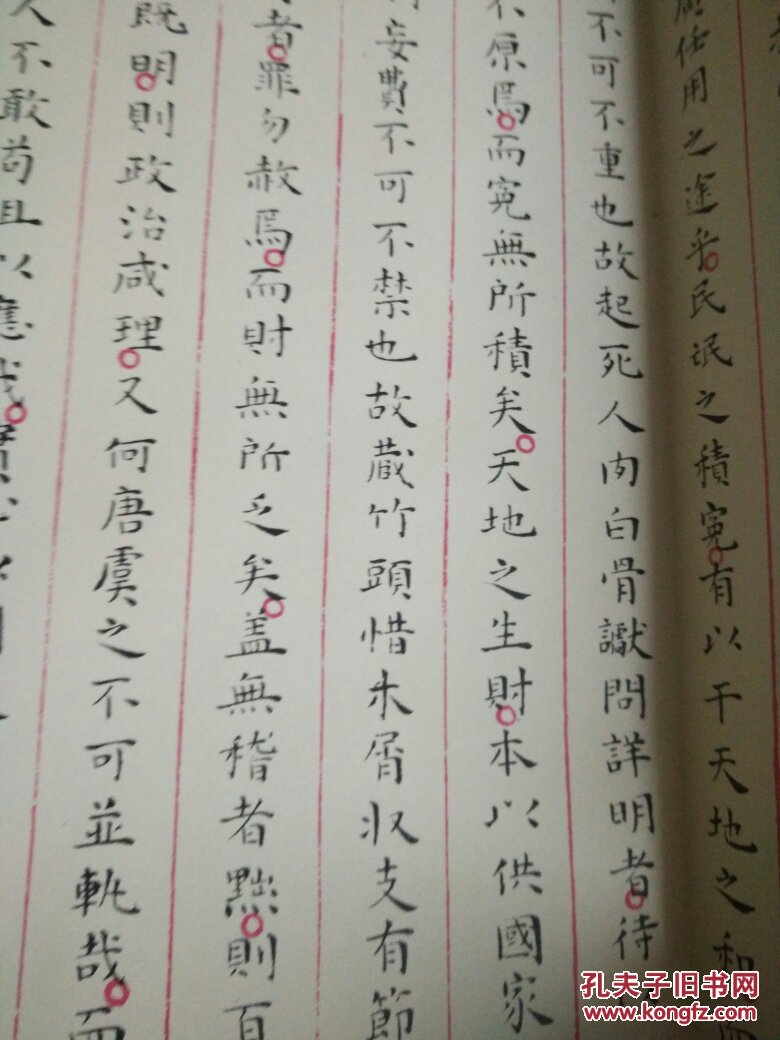 應任用之途乎民氓之積冤有以干天地之和
不可不重也故起死人肉白骨讞問詳明者待
不原焉而冤無所積矣天地之生財本以供國家
妄費不可不禁也故蔵竹頭惜木屑収支有節
者罪勿赦焉而財無所乏矣盖無稽者黜則百
既明則政治咸理又何唐虞之不可並軌哉而
人不敢苟且以應哉實
孔夫子旧书网
www.kongfz.com